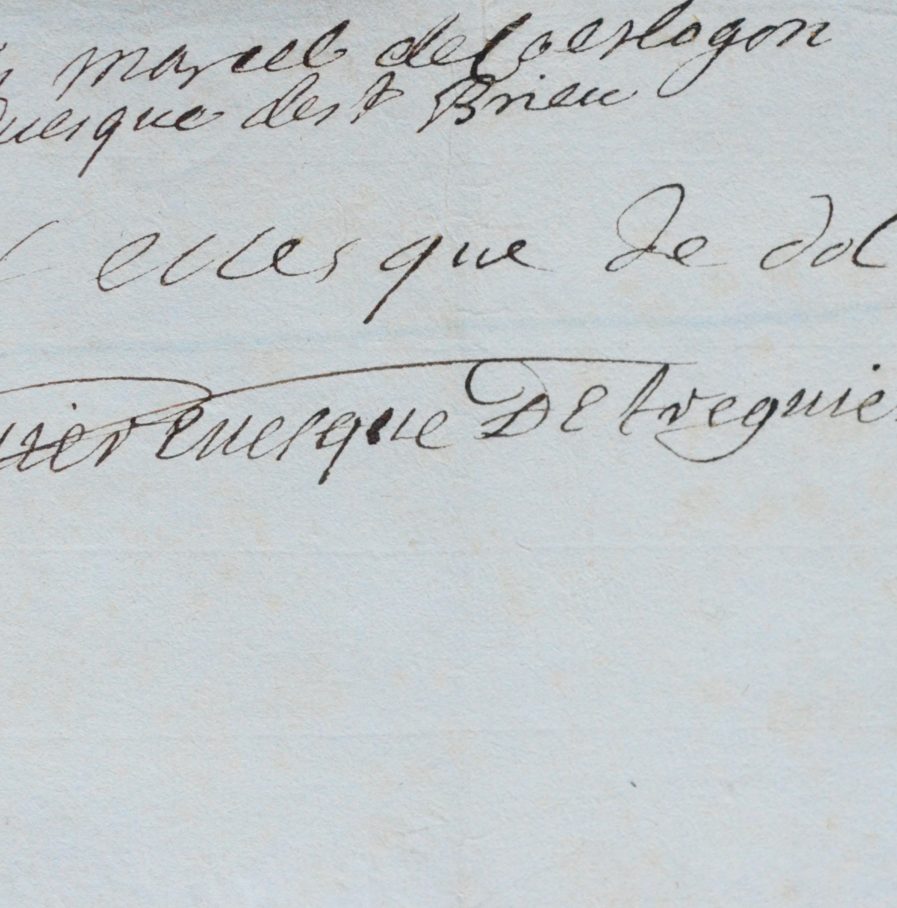 marcel de Coetlogon
uesque de st Brieu
euesque de dol
uier euesque De treguier